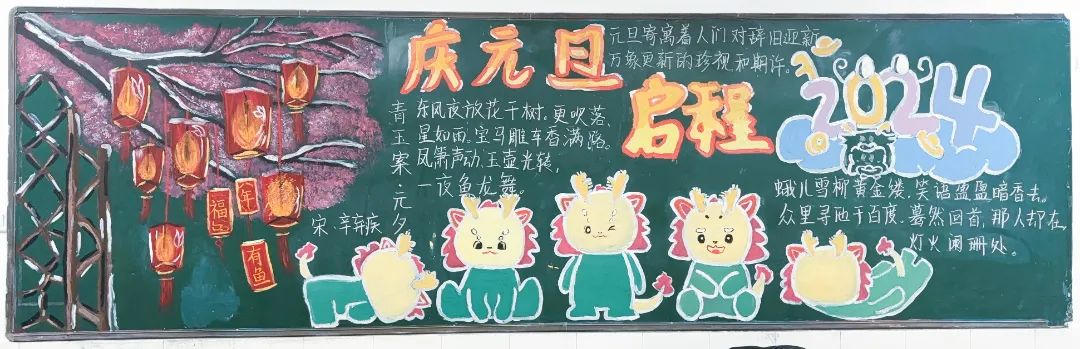 庆元旦
启程
元旦寄寓着人们对辞旧迎新
万象更新的珍视和期许。
2024
青玉案元夕
东风夜放花千树。更吹落、
星如雨。宝马雕车香满路。
凤箫声动,玉壶光转,
一夜鱼龙舞。
宋·辛弃疾
蛾儿雪柳黄金缕,笑语盈盈暗香去。
众里寻他千百度,蓦然回首,那人却在
灯火阑珊处。
福
年
有鱼